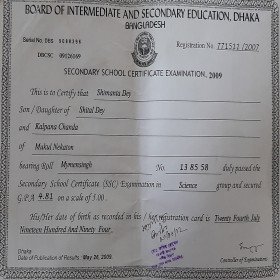 BOARD OF INTERMEDIATE AND SECONDARY EDUCATION, DHAKA
BANGLADESH
Serial No. DBS
DBCSC 09126169 Registration No 771511/2007
SECONDARY SCHOOL CERTIFICATE EXAMINATION, 2009
This is to Certify that Shimanta Dey
Son / Daughter of Shital Dey
and Kalpana Chanda
of Mukul Nekaton
bearing Roll Mymensingh No. 13 85 58 duly passed the
Secondary School Certificate (SSC) Examination in Science group and secured
G.P.A 4.81 on a scale of 5.00.
His/Her date of birth as recorded in his / her registration card is Twenty Fourth July
Nineteen Hundred And Ninety Four.
Dhaka
Date of Publication of Results May 26, 2009
Controller of Examinations